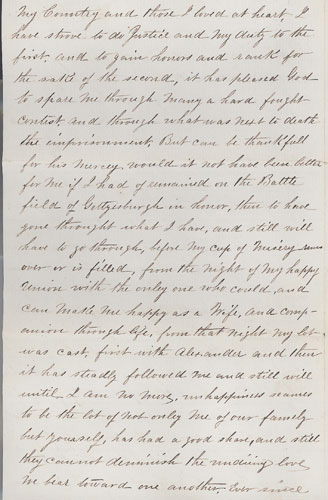 My Country and those I loved at heart. I
have strove to do Justice and my duty to the
first, and to gain honors and rank for
the sake of the second, it has pleased God
to spare me through many a hard fought
contest, and through what was next to death
the imprisonment. But can be thankfull
for his mercy, would it not have been better
for me if I had of remained on the Battle
field of Gettysburgh in honor, then to have
gone throught what I have, and still will
have to go through, before my cup of misery runs
over or is filled, from the night of my happy
Union with the only one who could, and
can make me happy as a Wife, and comp-
anion through life, from that night my lot
was cast, first with Alexander and then
it has steadly followed me and still will
until I am no more, unhappiness seames
to be the lot of not only me of our family
but yourself, has had a good share, and still
they cannot deminish the undieing love
we bear toward one another. Ever since